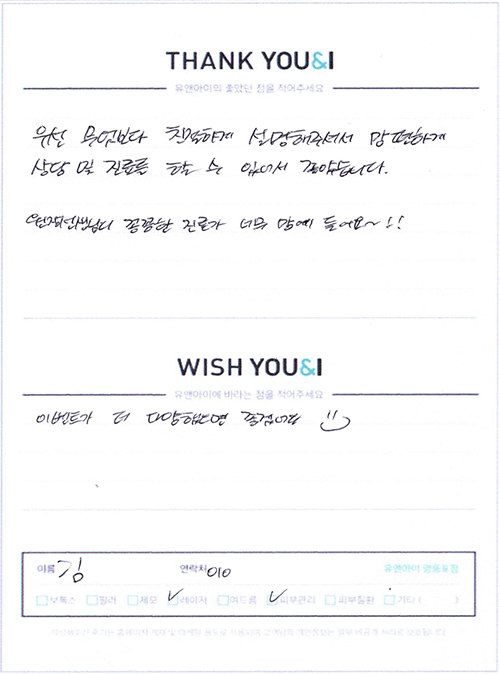 THANK YOU&I
유앤아이의 좋았던 점을 적어주세요
우선 무엇보다 친절하게 설명해주셔서 맘 편하게
상담 및 진료를 할 수 있어서 좋았습니다.
꼼꼼한 진료가 너무 맘에 들어요~!!
WISH YOU&I
유앤아이에 바라는 점을 적어주세요
이벤트가 더 다양했으면 좋겠어요
이름 김 연락처 010 유앤아이 영등포점
보톡스 필러 제모 레이저 여드름 피부관리 피부질환 기타 ( )